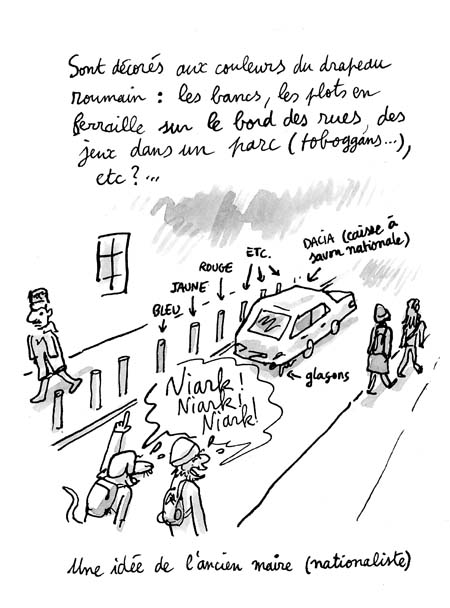 Sont décorés aux couleurs du drapeau
roumain : les bancs, les plots en
ferraille sur le bord des rues, des
jeux dans un parc (toboggans...),
etc ?...
DACIA (caisse à
savon nationale)
ETC.
ROUGE
JAUNE
BLEU
glaçons
Niark !
Niark !
Niark !
Une idée de l'ancien maire (nationaliste)